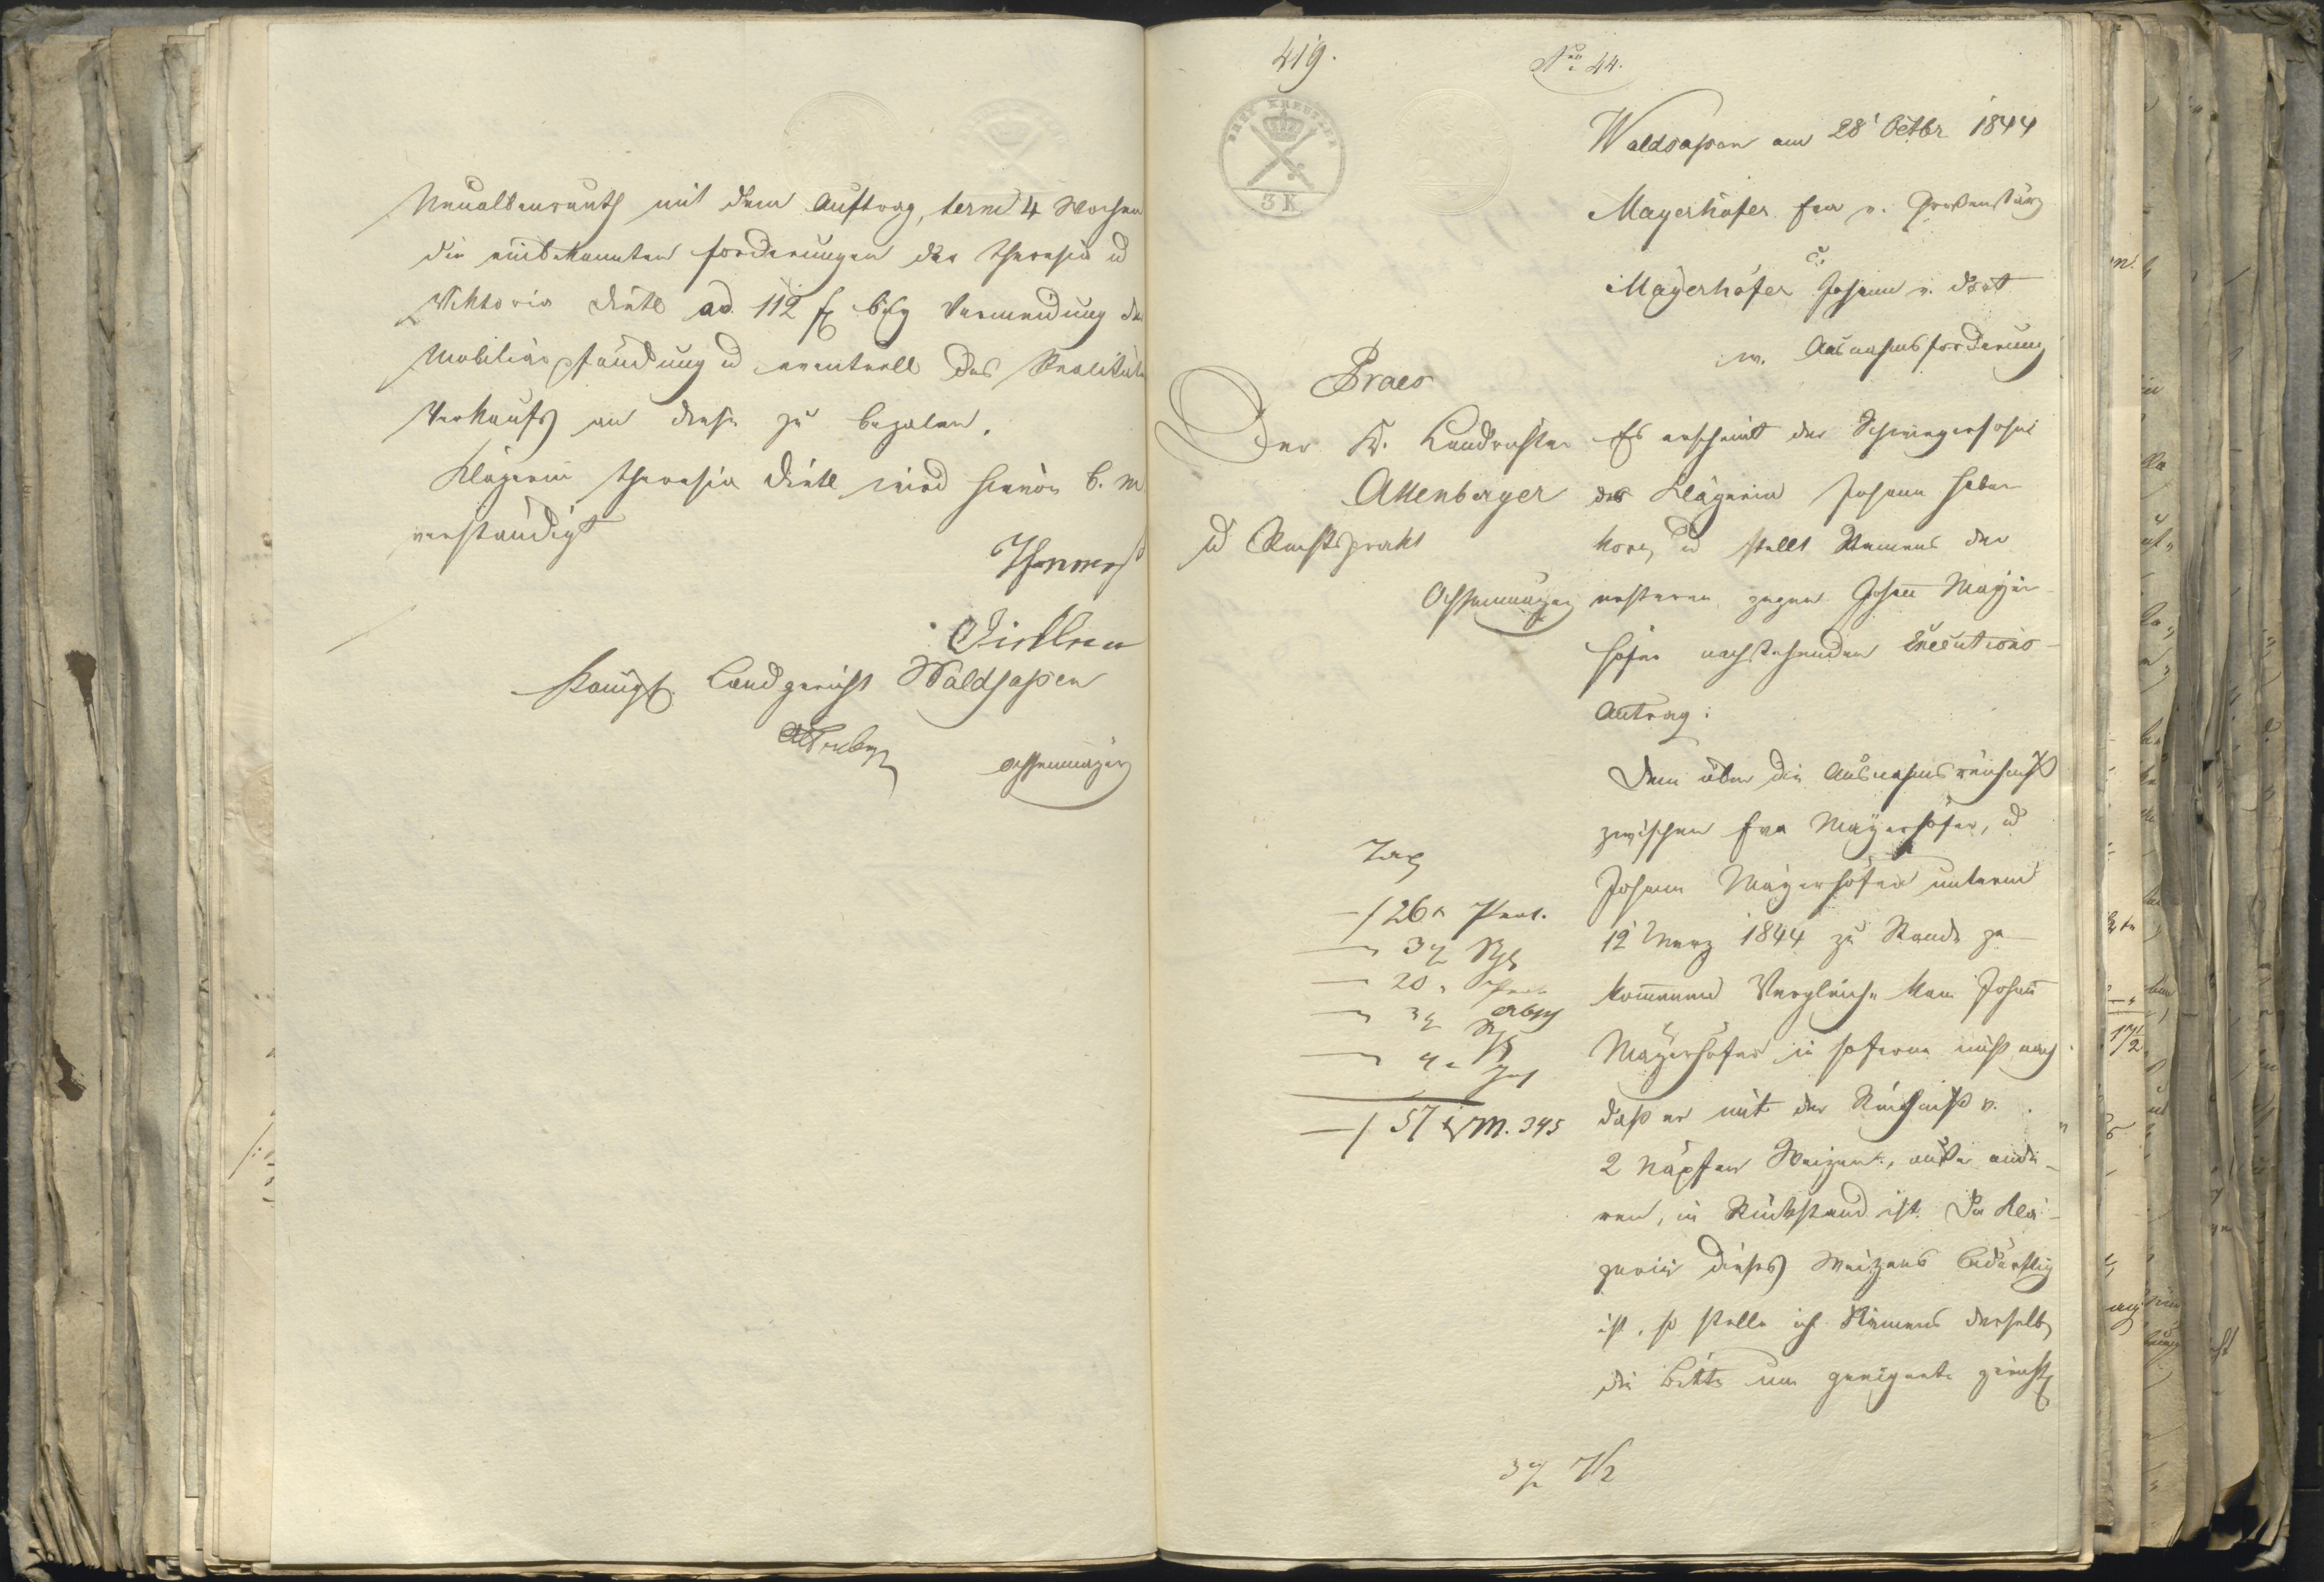 Neualbenreuth mit dem Auftrag, term 4 Wochen
die einbekannten Forderungen der Theresia u
Viktoria Dietl ad 112 f bey Vermeidung der
Mobiliarpfändung u eventuell des Realitäten
Verkaufs an diese zu bezalen.
Klägerin Theresia Dietl wird hievon b. m
verständigt
Königl. Landgericht Waldsaßen
419.
No 44.
DREY KREUTZER
3 K
Waldsaßen am 28 Octbr 1844
Mayerhöfer Eva v. Großensterz
c.
Mayerhöfer Johann v. dort
w. Ausnahmsforderung
Praes
Der K. Landrichter
Attenberger
u Rechtsprakt
Es erscheint der Schwiegersohn
der Klägerin Johann Haber
korn, u stellt Namens der
ersteren gegen Johann Mayer
höfer nachstehenden Executions-
Antrag:
Dem über die Ausnahmsreichniß
zwischen Eva Mayerhöfer, u
Johann Mayerhöfer unterm
12 Merz 1844 zu Stande ge-
kommenen Vergleiche kam Johann
Mayerhöfer in soferne nicht nach
daß er mit der Reichniß v.
2 Näpfen Weizen, außer ande-
ren, in Rückstand ist. Da Klä-
gerin dieses Weizens bedürftig
ist, so stelle ich Namens derselben
die Bitte um geeignete gericht
Tax
—f 26 x Prot.
— 3
— 20
— 3
— 4
—f 57 x M. 345